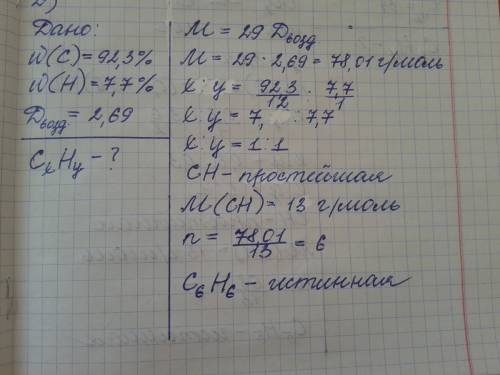 2)
Дано:
W(C)=92,3%
W(H)=7,7%
Dвозд = 2,69
CxHy - ?
M = 29 Dвозд
M = 29 · 2,69 = 78,01 г/моль
x : y = 92,3/12 : 7,7/1
x : y = 7, : 7,7
x : y = 1 : 1
CH - простейшая
M(CH) = 13 г/моль
n = 78,01/13 = 6
C6H6 - истинная